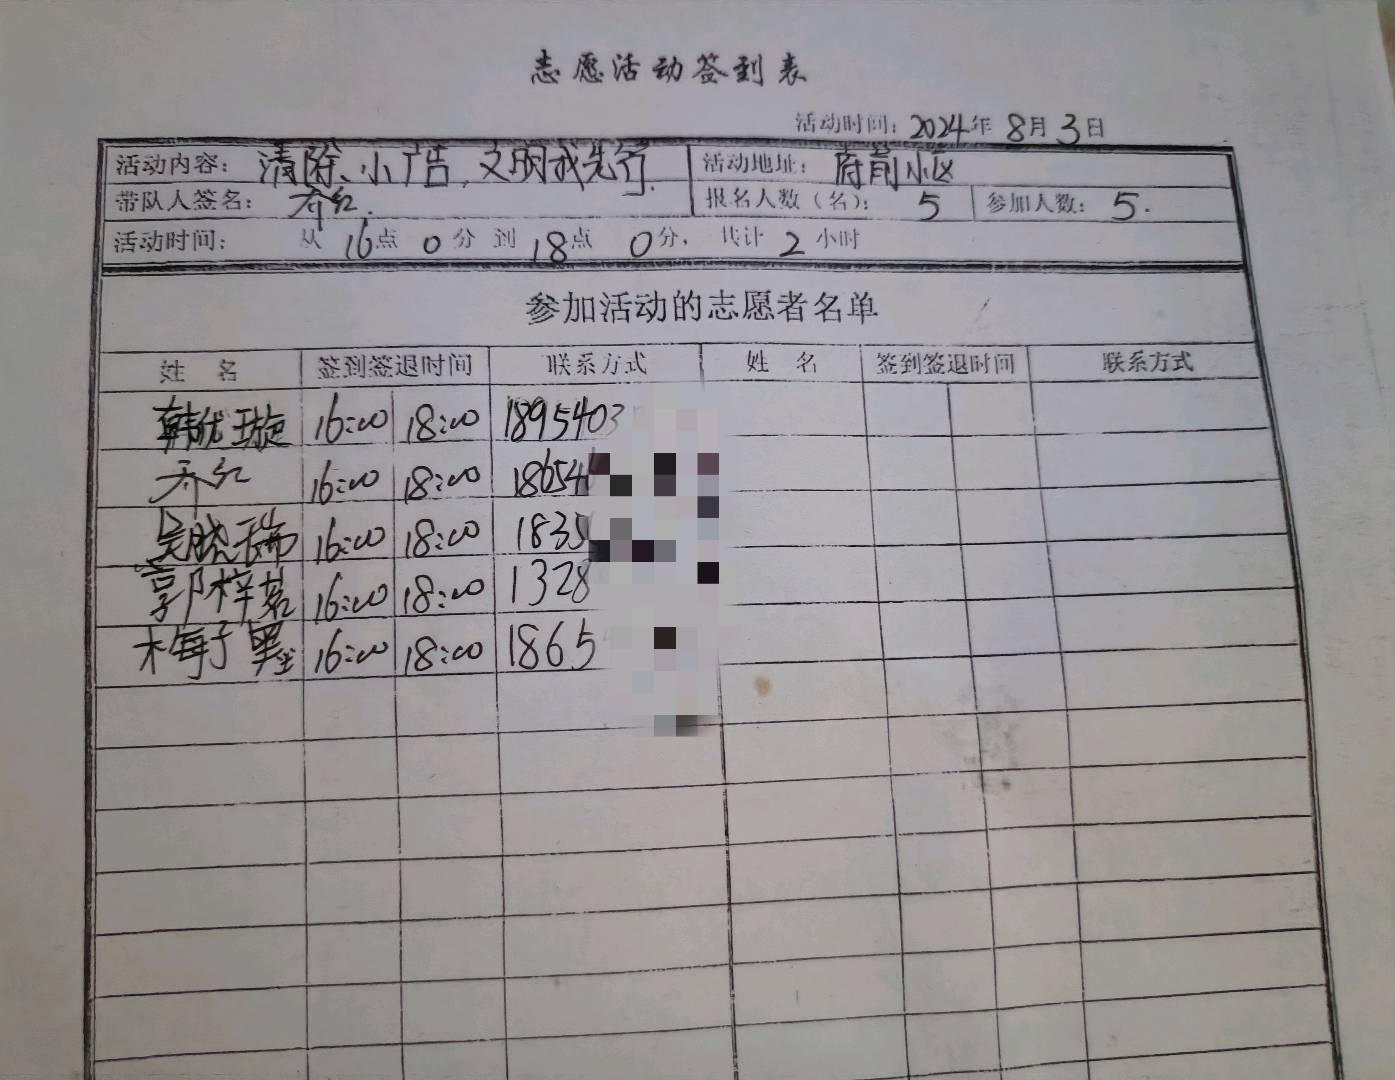 志愿活动签到表
活动时间：2024年8月3日
活动内容：清除小广告，文明我先行. 活动地址：府前小区
带队人签名：乔红. 报名人数（名）：5 参加人数：5.
活动时间：从16点0分到18点0分，共计2小时
参加活动的志愿者名单
姓 名 签到签退时间 联系方式 姓 名 签到签退时间 联系方式
韩优璇 16:00 18:00 1895403
乔红 16:00 18:00 18654
吴晓瑞 16:00 18:00 1835
郭梓茗 16:00 18:00 1328
16:00 18:00 1865